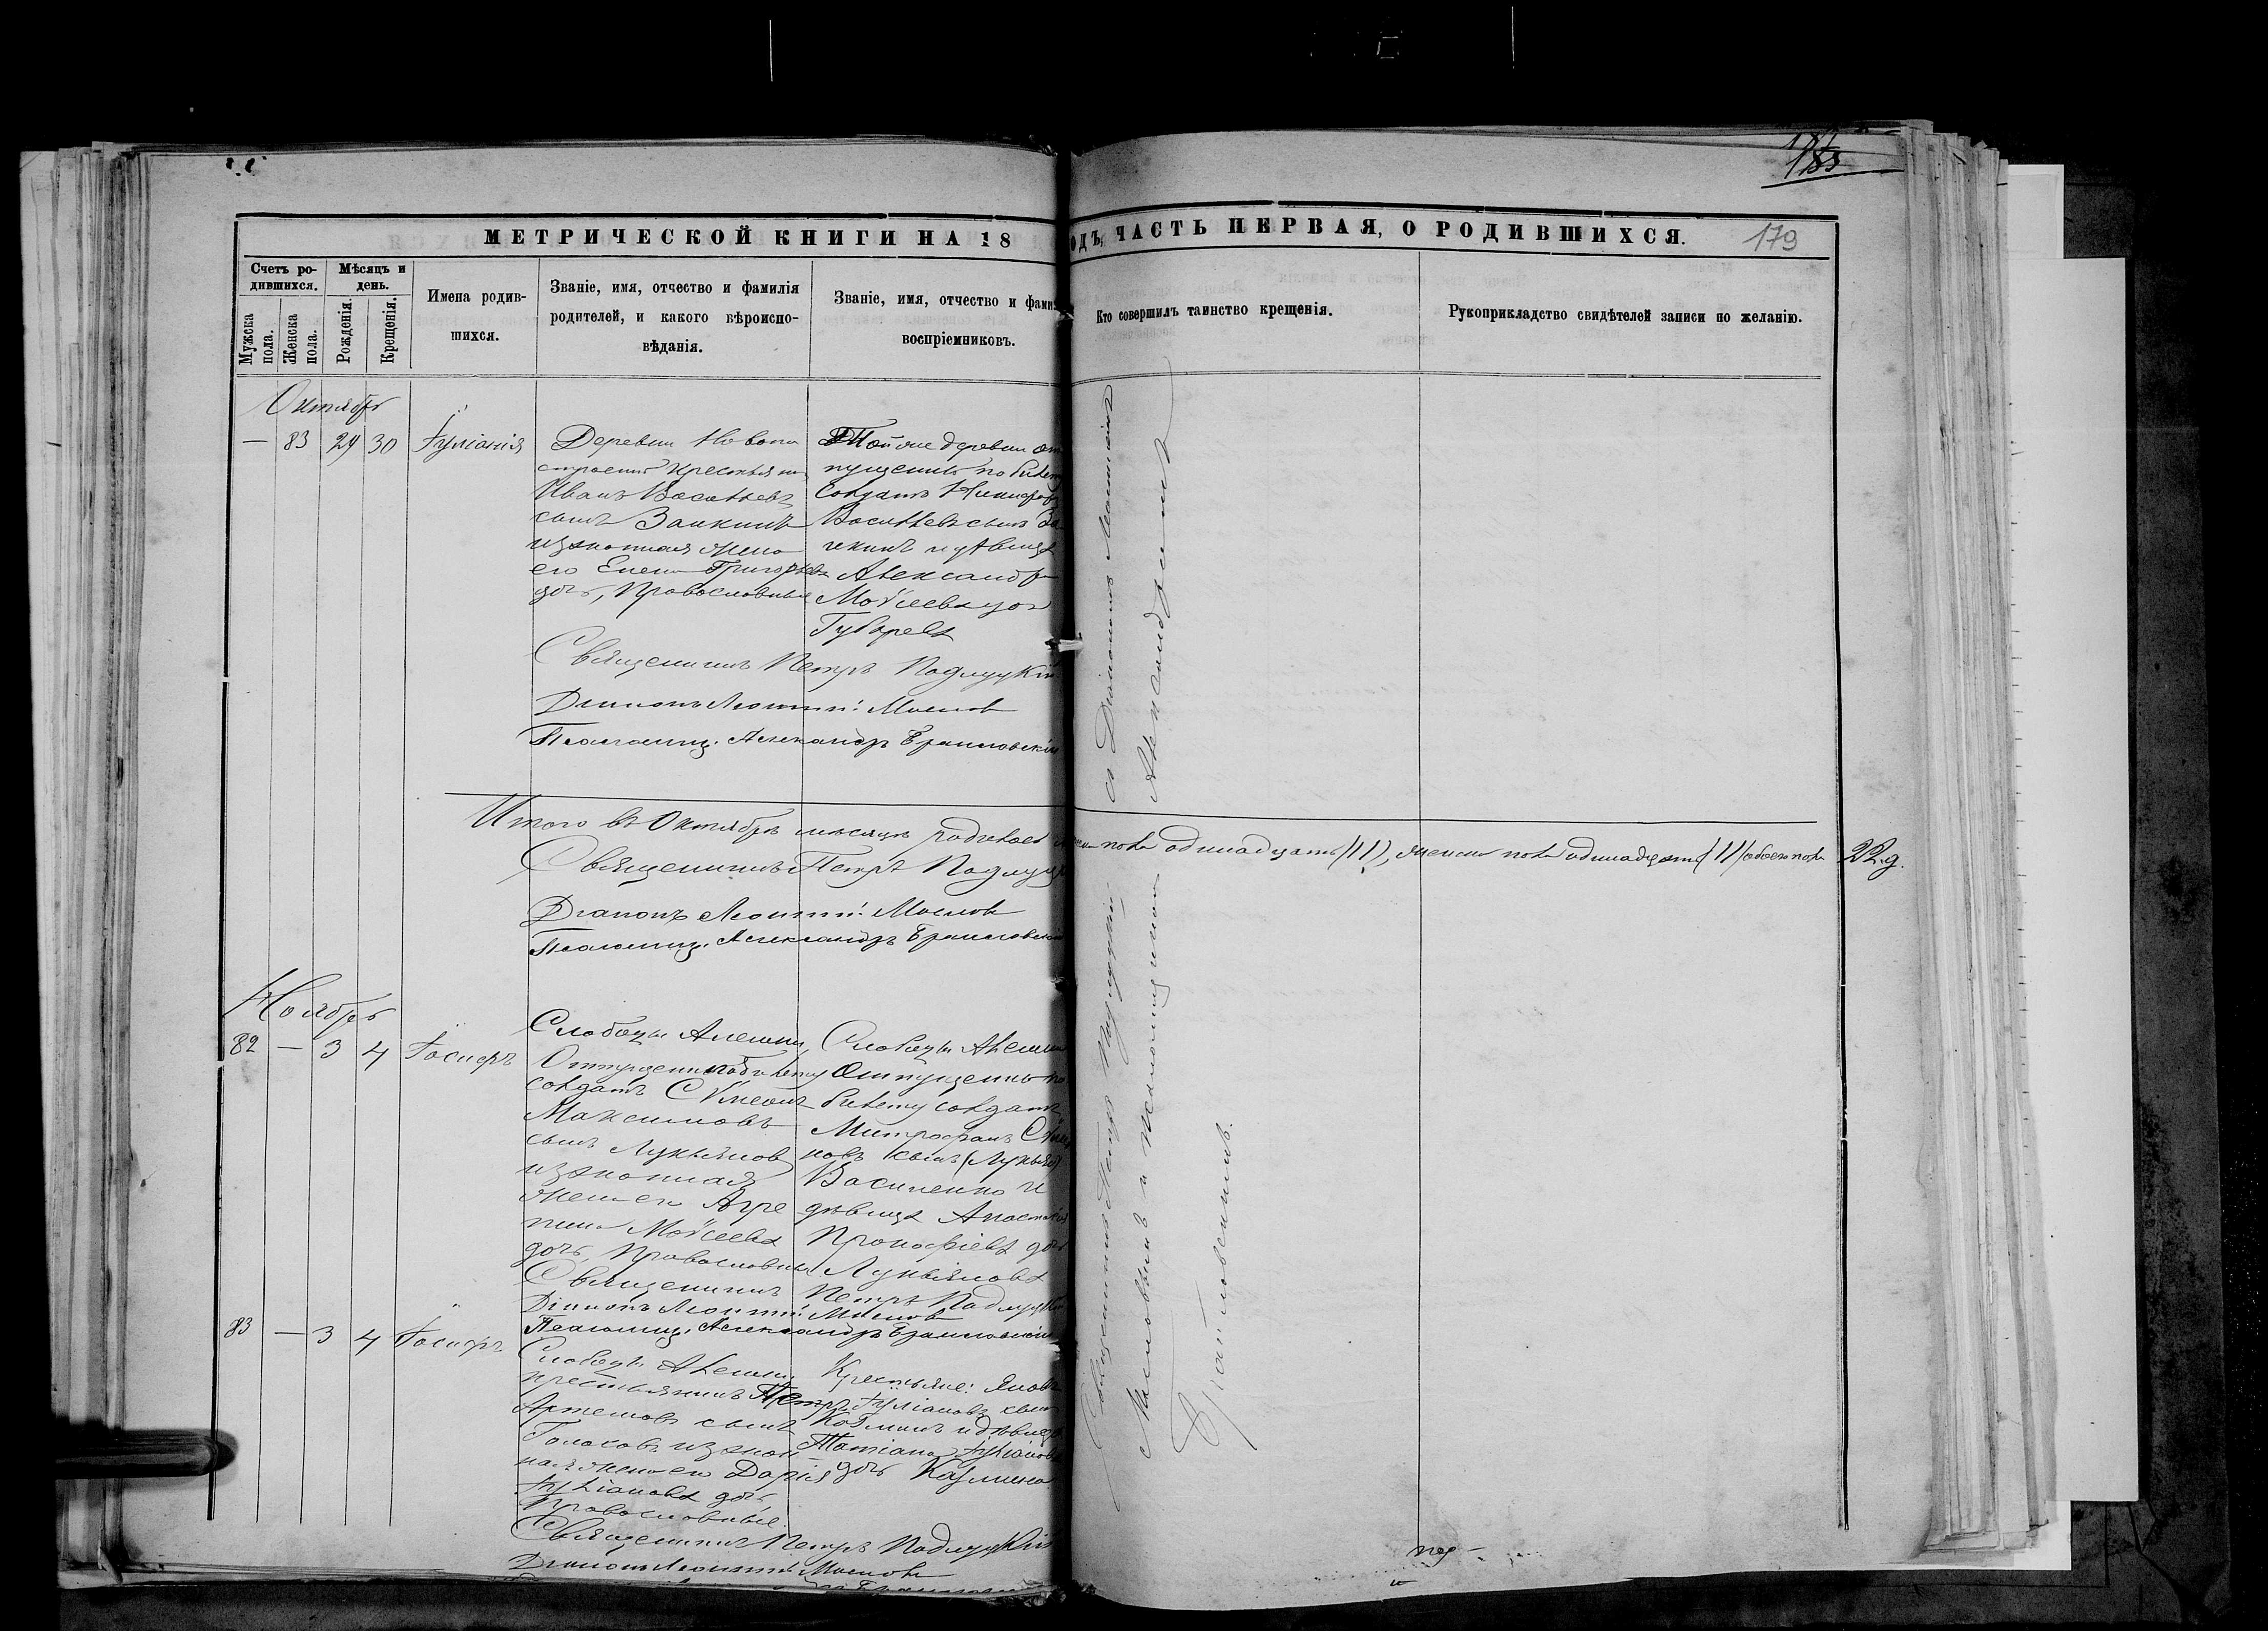 185
МЕТРИЧЕСКОЙ КНИГИ НА 18
ОДЪ, ЧАСТЬ ПЕРВАЯ, О РОДИВШИХСЯ.
179
Счетъ ро-
дившихся.
Мѣсяцъ и
день.
Мужска
пола.
Женска
пола.
Рожденія.
Крещенія.
Имена родив-
шихся.
Званіе, имя, отчество и фамилія
родителей, и какого вѣроиспо-
вѣданія.
Званіе, имя, отчество и фами
воспріемниковъ.
Кто совершилъ таинство крещенія.
Рукоприкладство свидѣтелей записи по желанію.
Октябрь
— 83 24 30 Іуліанія
Деревни Ново
строений крестьянинъ
Иванъ Васильевъ
сынъ Заикинъ
и законная жена
его Елена Григорьева
дочь, Православные
Той же деревни от
пущенный по билету
Солдатъ Никифоръ
Васильевъ сынъ За
икинъ и дѣвица
Александра
Моѵсеева доч
Губарева
Священникъ Петръ Подлуцкій
Діаконъ Леонтій Маслов
Псаломщ. Александръ Ераиловскій
Итого въ Октябрѣ мѣсяцѣ родилось
пола одинадцать (11), женска пола одинадцать (11) обоего пола 22 д.
Священникъ Петръ Подлуц
Діаконъ Леонтій Маслов
Псаломщ. Александръ
Ноябрь
82 — 3 4 Іосифъ
Слободы Алешни
Отпущенный по билету
солдатъ Сѵмеонъ
Максимовъ
сынъ Лукьянов
и законная
жена его Агре
пина Моѵсеева
дочь, Православные
Слободы Алешни
Отпущенный по
билету солдатъ
Митрофанъ
новъ сынъ (Лукьян)
Василенко и
дѣвица Анастасія
Прокофіева дочь
Лукьянова
Священникъ Петръ Подлуцкій
Діаконъ Леонтій Маслов
Псаломщ. Александръ
83 — 3 4 Іосифъ
Слободы Алешни
крестьянинъ Петръ
Артемовъ сынъ
Голосовъ и закон
ная жена его Дарія
Іуліанова дочь
Православные.
Крестьяне: Яковъ
Іуліановъ сынъ
Козминъ и дѣвица
Татіана Іуліанова
дочь Казмина
Священникъ Петръ Подлуцкій
Діаконъ Леонтій Маслов
Священникъ Петръ Подлуцкій съ Діакономъ Леонтіемъ
Масловымъ и Псаломщикомъ Александромъ